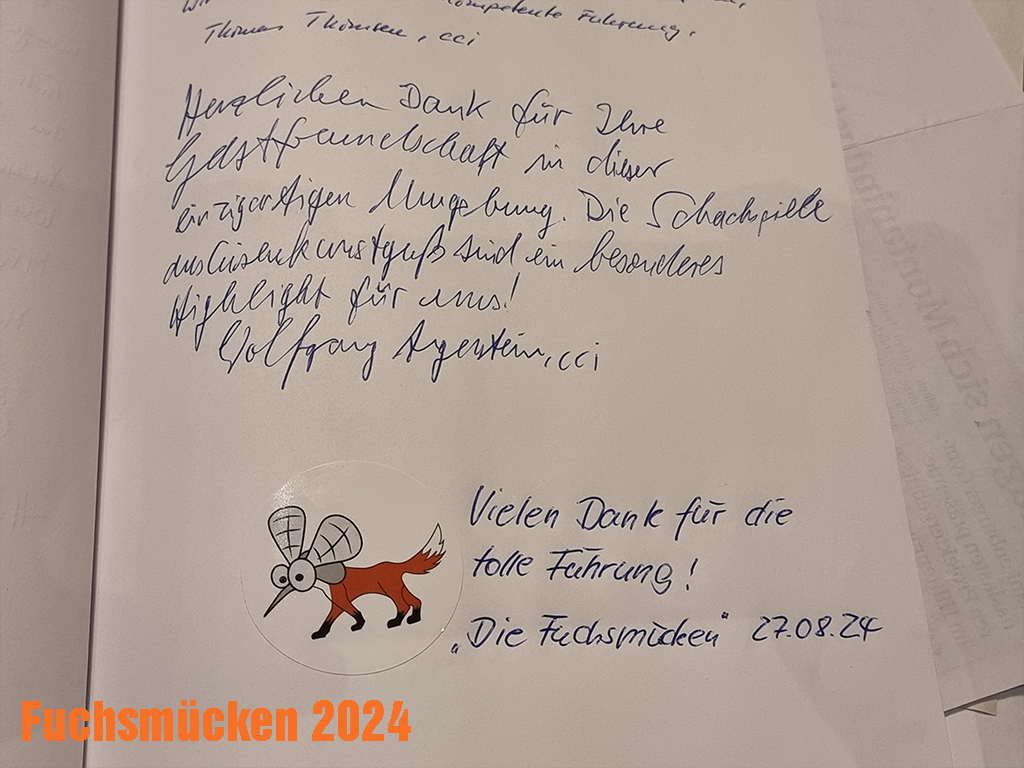 kompetente Führung,
Thomas Thomsen, cci
Herzlichen Dank für Ihre
Gastfreundschaft in dieser
einzigartigen Umgebung. Die Schachspiele
aus Eisenkunstguß sind ein besonderes
Highlight für uns!
Wolfgang Angerstein, cci
Vielen Dank für die
tolle Führung!
„Die Fuchsmücken“ 27.08.24
Fuchsmücken 2024